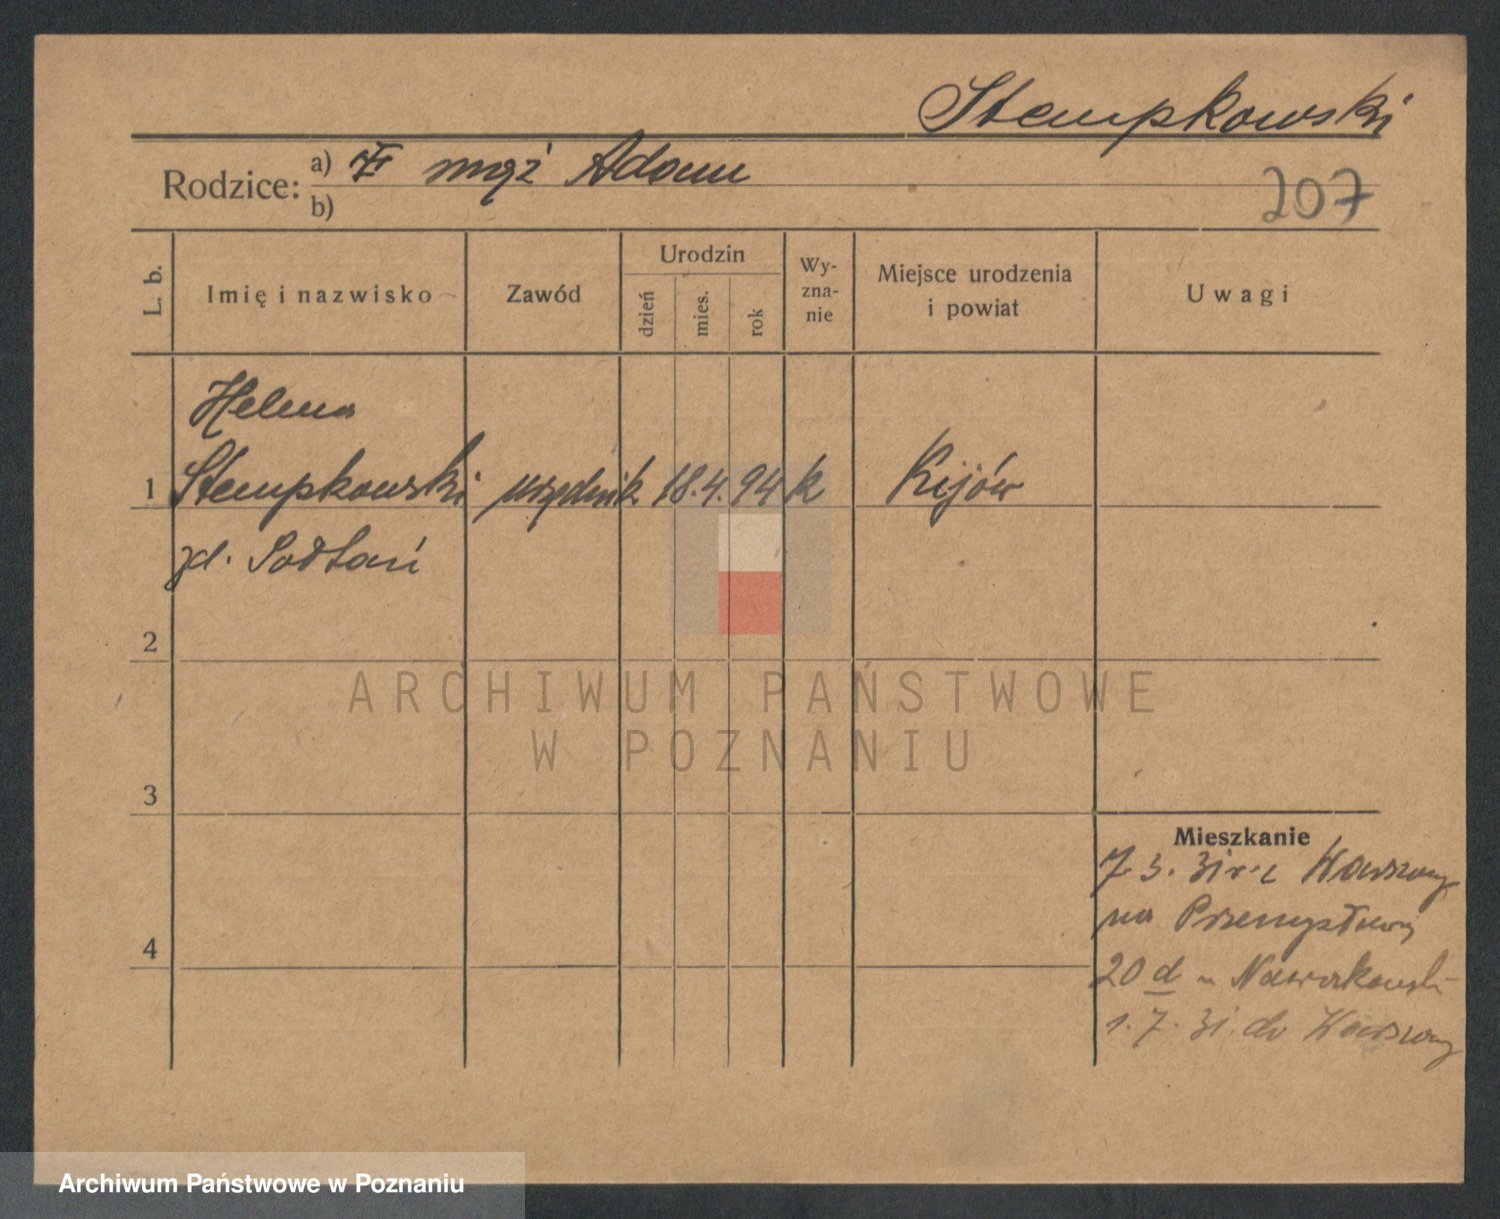 Stempkowski
Rodzice: a) mąż Adam
b)
207
L. b.
Imię i nazwisko
Zawód
Urodzin
dzień
mies.
rok
Wy-
zna-
nie
Miejsce urodzenia
i powiat
Uwagi
Helena
1 Stempkowski urzędnik 18. 4. 94 k Kijów
zd. Sołtań
2
ARCHIWUM PAŃSTWOWE
W POZNANIU
3
4
Mieszkanie
7. 3. 31 r. z Warszawy
na Przemysłową
20 d Nawrkowski
1. 7. 31. do Warszawy
Archiwum Państwowe w Poznaniu